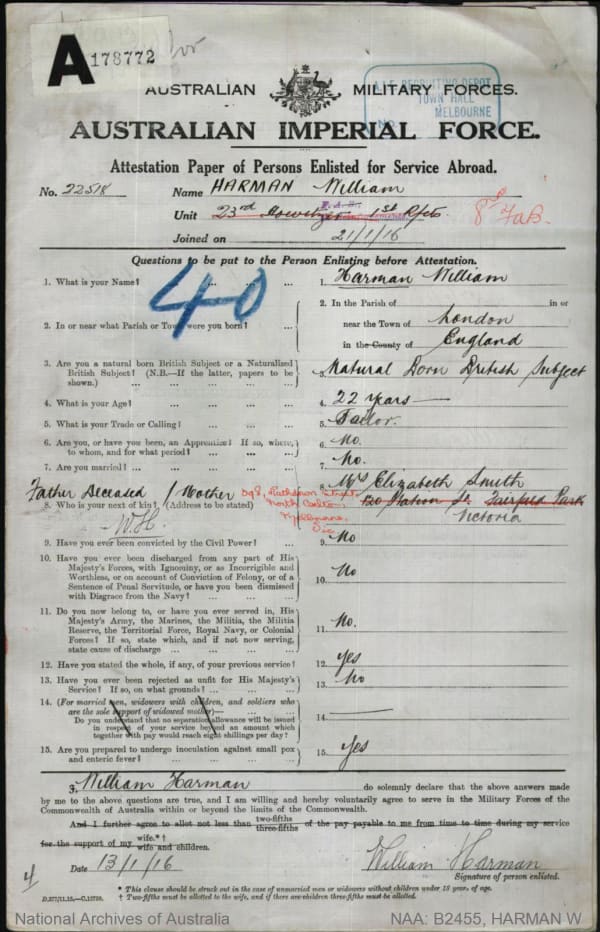 A 178772
AUSTRALIAN MILITARY FORCES.
A.I.F. RECRUITING DEPOT
TOWN HALL
MELBOURNE
No.
AUSTRALIAN IMPERIAL FORCE.
Attestation Paper of Persons Enlisted for Service Abroad.
No. 22518 Name HARMAN William
Unit 23rd Howitzer 1st Rfts. 8th FaB.
Joined on 21/1/16
Questions to be put to the Person Enlisting before Attestation.
40
1. What is your Name? ... ... ... 1. Harman William
2. In or near what Parish or Town were you born? ... 2. In the Parish of London in or
near the Town of
in the County of England
3. Are you a natural born British Subject or a Naturalised British Subject? (N.B.—If the latter, papers to be shown.) ... 3. Natural Born British Subject
4. What is your Age? ... ... ... 4. 22 years
5. What is your Trade or Calling? ... ... 5. Tailor.
6. Are you, or have you been, an Apprentice? If so, where, to whom, and for what period? ... 6. No.
7. Are you married? ... ... ... 7. No.
Father Deceased / Mother
8. Who is your next of kin? (Address to be stated) 8. Mrs Elizabeth Smith
120 Station St. Fairfield Park
Victoria
North Carlton,
Melbourne,
Vic
W.H.
9. Have you ever been convicted by the Civil Power? ... 9. No
10. Have you ever been discharged from any part of His Majesty's Forces, with Ignominy, or as Incorrigible and Worthless, or on account of Conviction of Felony, or of a Sentence of Penal Servitude, or have you been dismissed with Disgrace from the Navy? ... 10. No
11. Do you now belong to, or have you ever served in, His Majesty's Army, the Marines, the Militia, the Militia Reserve, the Territorial Force, Royal Navy, or Colonial Forces? If so, state which, and if not now serving, state cause of discharge ... 11. No.
12. Have you stated the whole, if any, of your previous service? 12. yes
13. Have you ever been rejected as unfit for His Majesty's Service? If so, on what grounds? ... 13. No
14. (For married men, widowers with children, and soldiers who are the sole support of widowed mother)—
Do you understand that no separation allowance will be issued in respect of your service beyond an amount which together with pay would reach eight shillings per day? 14.
15. Are you prepared to undergo inoculation against small pox and enteric fever? ... 15. Yes
3. William Harman do solemnly declare that the above answers made
by me to the above questions are true, and I am willing and hereby voluntarily agree to serve in the Military Forces of the
Commonwealth of Australia within or beyond the limits of the Commonwealth.
And I further agree to allot not less than two-fifths three-fifths of the pay payable to me from time to time during my service
for the support of my wife.*† wife and children.
4 Date 13/1/16 William Harman
Signature of person enlisted.
* This clause should be struck out in the case of unmarried men or widowers without children under 18 years of age.
† Two-fifths must be allotted to the wife, and if there are children three-fifths must be allotted.
National Archives of Australia NAA: B2455, HARMAN W